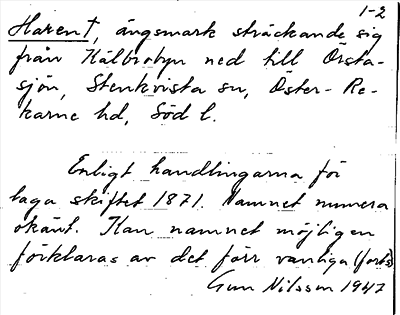 1-2
Haren †, ängsmark sträckande sig
från Kälbrobyn ned till Örsta-
sjön, Stenkvista sn, Öster-Re-
karne hd, Söd l.
Enligt handlingarna för
laga skiftet 1871. Namnet numera
okänt. Kan namnet möjligen
förklaras av det förr vanliga (forts)
Gun Nilsson 1947